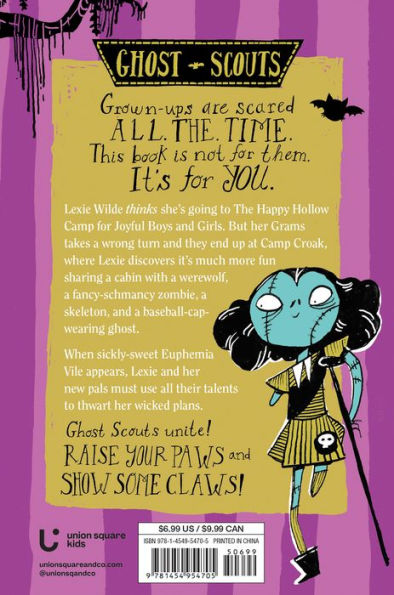 GHOST SCOUTS
Grown-ups are scared
ALL. THE. TIME.
This book is not for them.
It's for YOU.
Lexie Wilde thinks she's going to The Happy Hollow
Camp for Joyful Boys and Girls. But her Grams
takes a wrong turn and they end up at Camp Croak,
where Lexie discovers it's much more fun
sharing a cabin with a werewolf,
a fancy-schmancy zombie, a
skeleton, and a baseball-cap-
wearing ghost.
When sickly-sweet Euphemia
Vile appears, Lexie and her
new pals must use all their talents
to thwart her wicked plans.
Ghost Scouts unite!
RAISE YOUR PAWS and
SHOW SOME CLAWS!
union square
kids
unionsquareandco.com
@unionsqandco
$6.99 US / $9.99 CAN
ISBN 978-1-4549-5470-5 PRINTED IN CHINA
50699
9 781454 954705